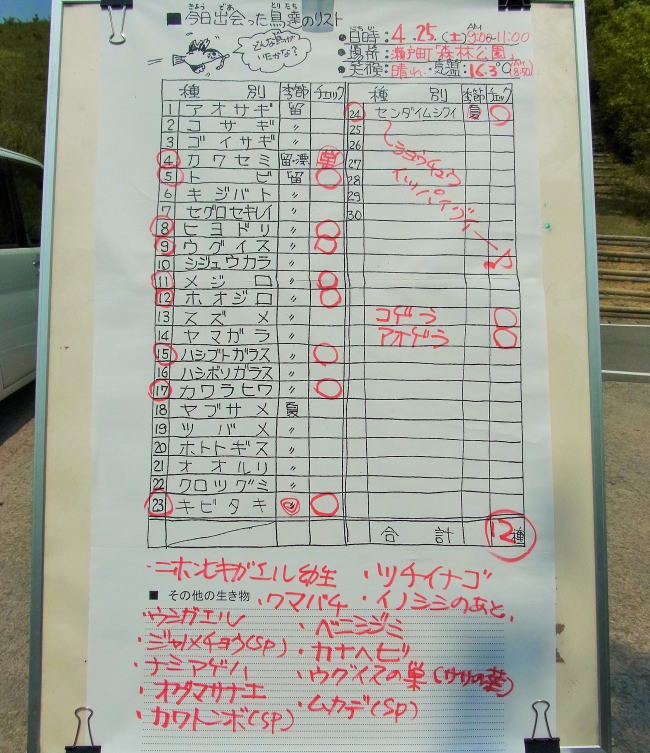 きょう であ とり たち
■今日出会った鳥達のリスト
どんな鳥が
いたかな?
●日時:4.25.(土) AM 9:00-11:00
●場所:瀬戸町「森林公園」
●天候:晴れ・気温:16.3℃(AM 8:50)
種 別 季節 チェック
1 アオサギ 留
2 コサギ 〃
3 ゴイサギ 〃
4 カワセミ 留・漂 巣
5 トビ 留 ○
6 キジバト 〃
7 セグロセキレイ 〃
8 ヒヨドリ 〃 ○
9 ウグイス 〃 ○
10 シジュウカラ 〃
11 メジロ 〃 ○
12 ホオジロ 〃 ○
13 スズメ 〃
14 ヤマガラ 〃
15 ハシブトガラス 〃 ○
16 ハシボソガラス 〃
17 カワラヒワ 〃 ○
18 ヤブサメ 夏
19 ツバメ 〃
20 ホトトギス 〃
21 オオルリ 〃
22 クロツグミ 〃
23 キビタキ 〃 ○
種 別 季節 チェック
24 センダイムシクイ 夏 ○
25
26
27
28
29
30
ショウチュウ
イッパイグイー♪
コゲラ ○
アオゲラ ○
合 計 12種
・ニホンヒキガエル幼生 ・ツチイナゴ
■ その他の生き物 ・クマバチ ・イノシシのあと
・ウシガエル ・ベニシジミ
・ジャノメチョウ(sp) ・カナヘビ
・ナミアゲハ ・ウグイスの巣(ササの葉)
・オグマサナエ ・ムカデ(sp)
・カワトンボ(sp)